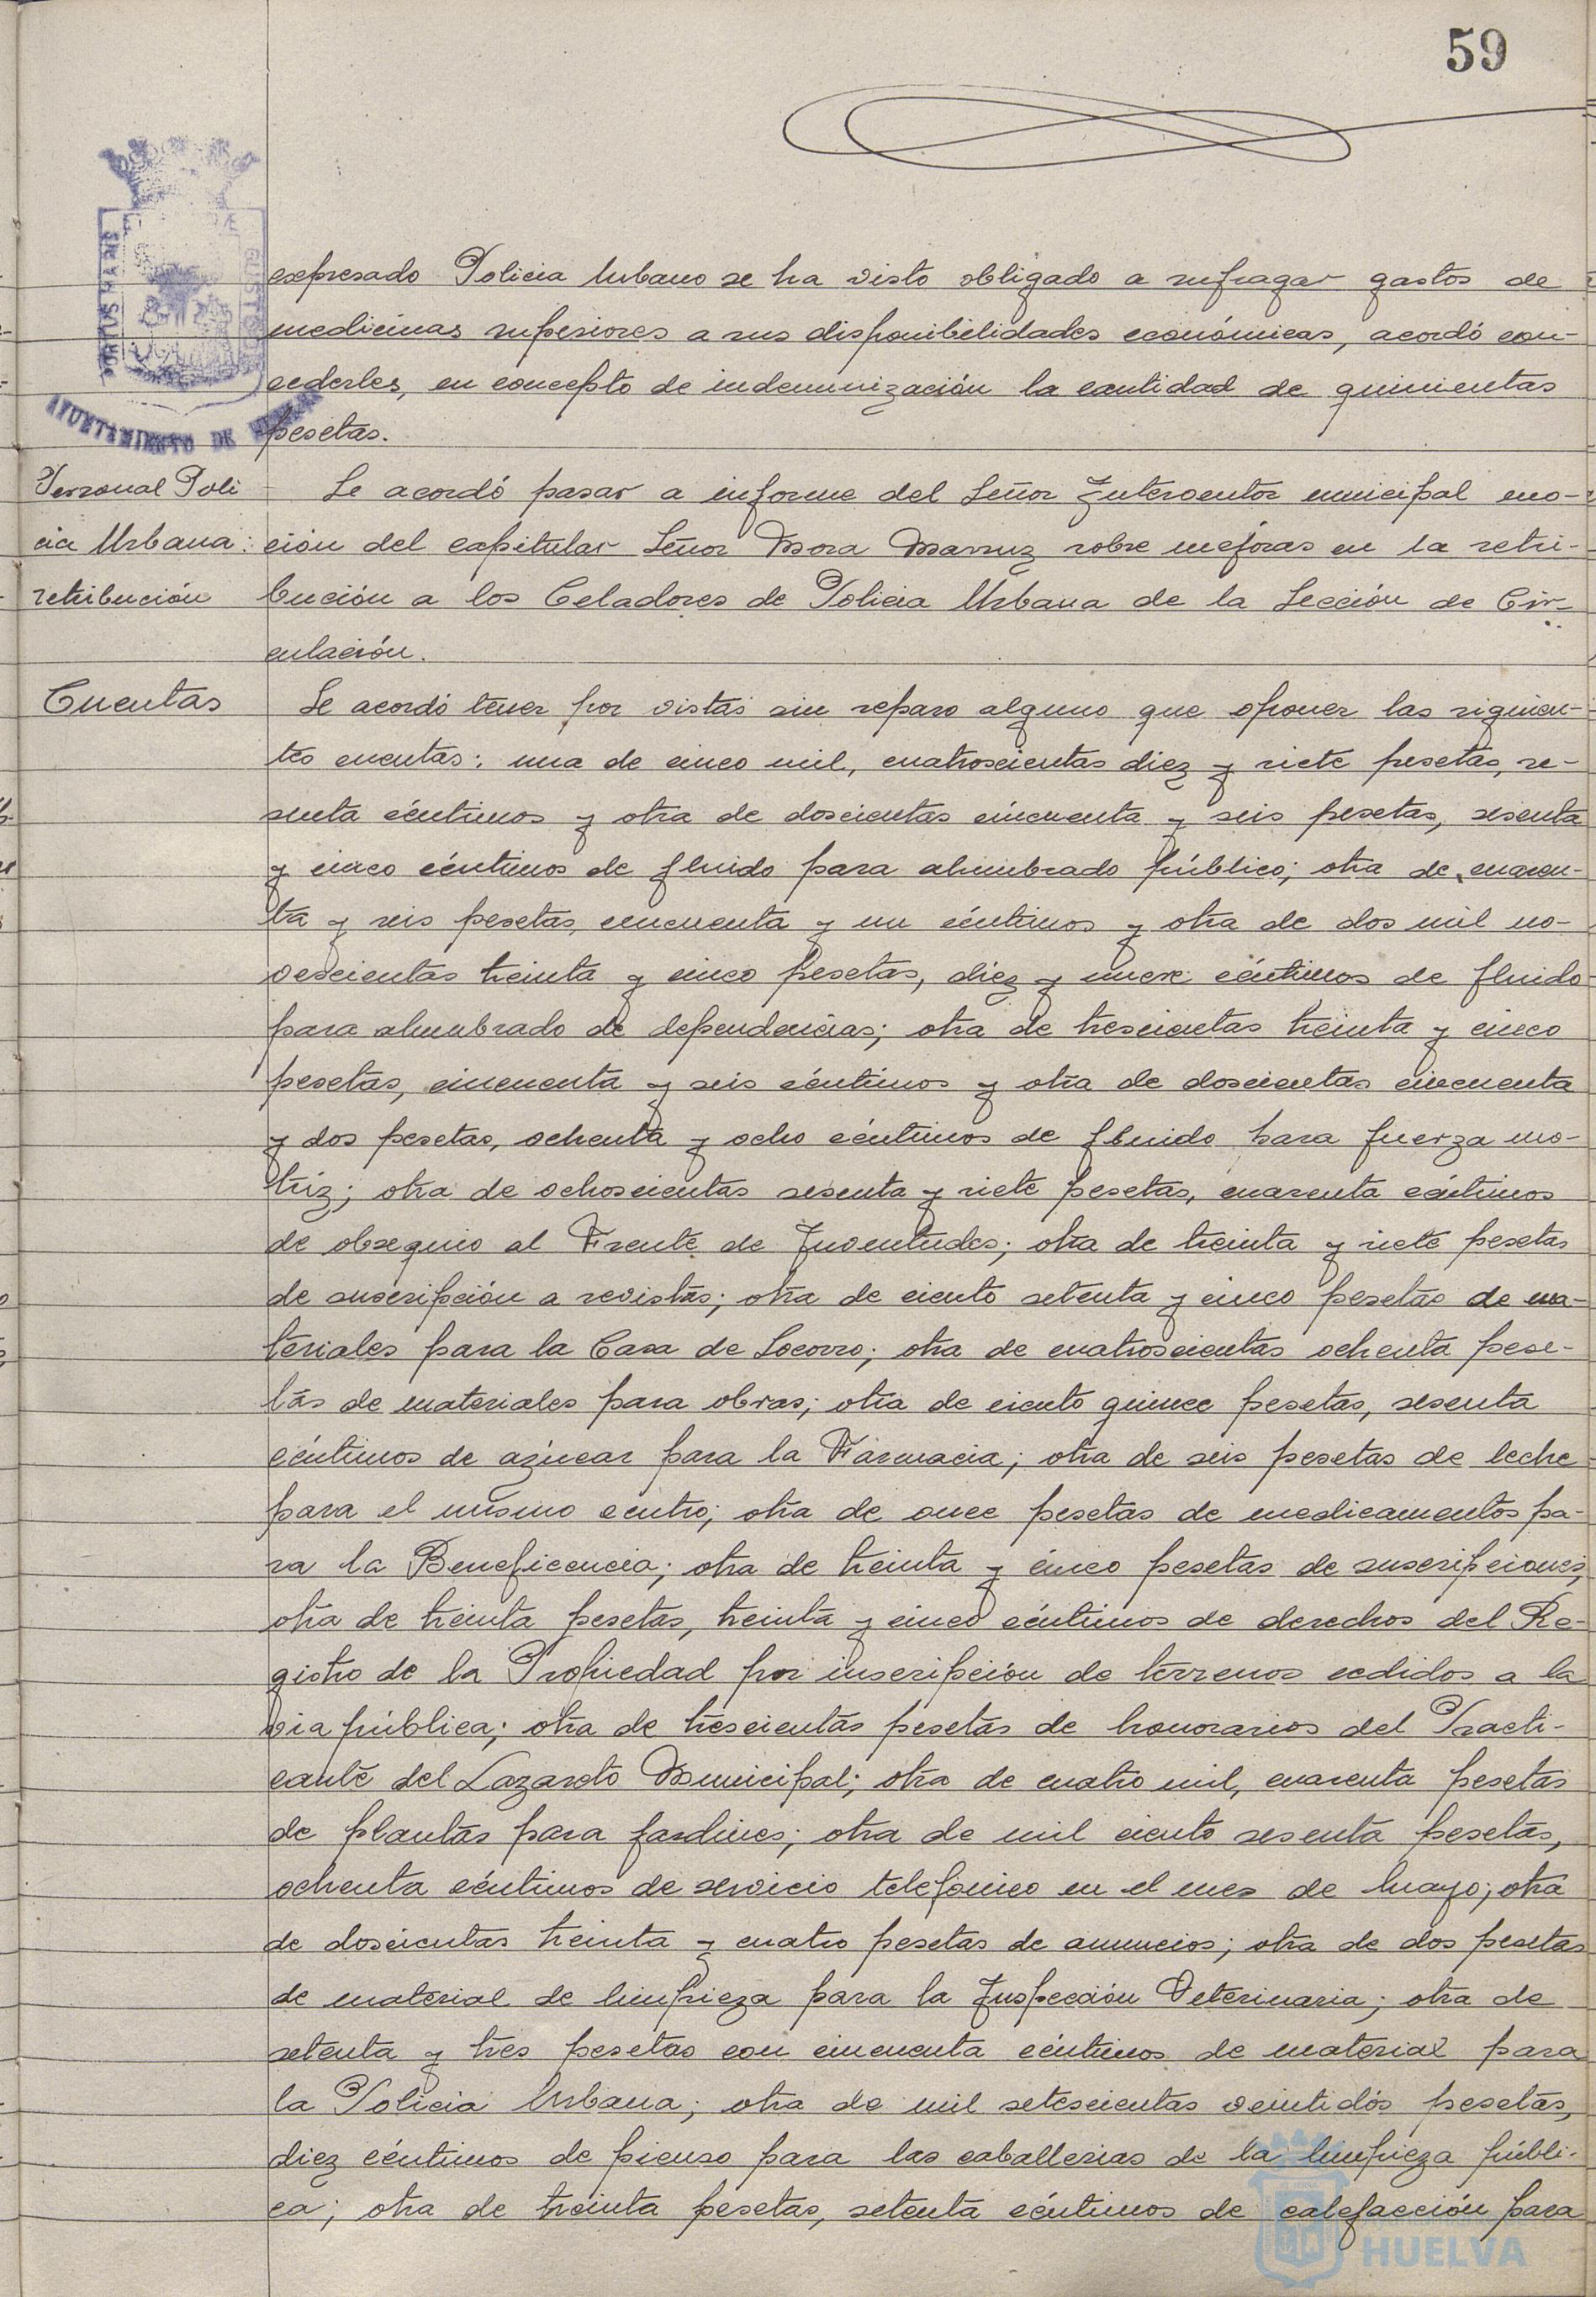 59
expresado Policia Urbano se ha visto obligado a sufragar gastos de
medicinas superiores a sus disponibilidades económicas, acordó con-
cederles, en concepto de indemnización la cantidad de quinientas
pesetas.
PORTUS MARIS
CUSTODIA
AYUNTAMIENTO DE HUELVA
Personal Poli
cia Urbana:
retribución
Se acordó pasar a informe del Señor Interventor municipal mo-
ción del capitular Señor Mora Marruz sobre mejoras en la retri-
bución a los Celadores de Policia Urbana de la Sección de Cir-
culación.
Cuentas
Se acordó tener por vistas sin reparo alguno que oponer las siguien-
tes cuentas: una de cinco mil, cuatroscientas diez y siete pesetas, se-
senta céntimos y otra de doscientas cincuenta y seis pesetas, sesenta
y cinco céntimos de fluido para alumbrado público; otra de cuaren-
ta y seis pesetas, cincuenta y un céntimos y otra de dos mil no-
vescientas treinta y cinco pesetas, diez y nueve céntimos de fluido
para alumbrado de dependencias; otra de trescientas treinta y cinco
pesetas, cincuenta y seis céntimos y otra de doscientas cincuenta
y dos pesetas, ochenta y ocho céntimos de fluido para fuerza mo-
triz; otra de ochoscientas sesenta y siete pesetas, cuarenta céntimos
de obsequio al Frente de Juventudes; otra de treinta y siete pesetas
de suscripción a revistas; otra de ciento setenta y cinco pesetas de ma-
teriales para la Casa de Socorro; otra de cuatroscientas ochenta pese-
tas de materiales para obras; otra de ciento quince pesetas, sesenta
céntimos de azúcar para la Farmacia; otra de seis pesetas de leche
para el mismo centro; otra de once pesetas de medicamentos pa-
ra la Beneficencia; otra de treinta y cinco pesetas de suscripciones,
otra de treinta pesetas, treinta y cinco céntimos de derechos del Re-
gistro de la Propiedad por inscripción de terrenos cedidos a la
via pública; otra de trescientas pesetas de honorarios del Practi-
cante del Lazareto Municipal; otra de cuatro mil, cuarenta pesetas
de plantas para jardines; otra de mil ciento sesenta pesetas,
ochenta céntimos de servicio telefónico en el mes de Mayo; otra
de doscientas treinta y cuatro pesetas de anuncios; otra de dos pesetas
de material de limpieza para la Inspección Veterinaria; otra de
setenta y tres pesetas con cincuenta céntimos de material para
la Policia Urbana; otra de mil setescientas veintidós pesetas,
diez céntimos de pienso para las caballerias de la limpieza públi-
ca; otra de treinta pesetas, setenta céntimos de calefacción para
HUELVA